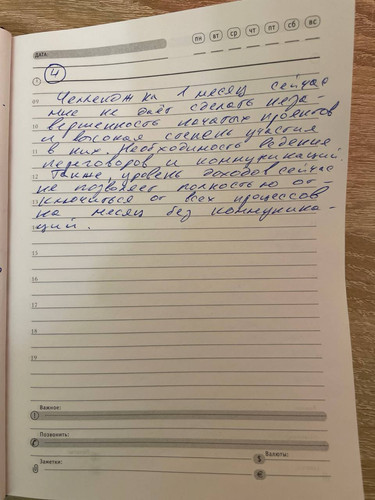 пн вт ср чт пт сб вс
ДАТА:
4
09 Челлендж на 1 месяц сейчас
мне не даёт сделать неза-
10 вершенность начатых проектов
и высокая степень участия
11 в них. Необходимость ведения
переговоров и коммуникаций.
12 Также, уровень доходов сейчас
не позволяет полностью от-
13 ключиться от всех процессов
на месяц без коммуника-
14 ций.
15
16
17
18
19
Важное:
Позвонить:
Заметки:
Валюты:
$
€